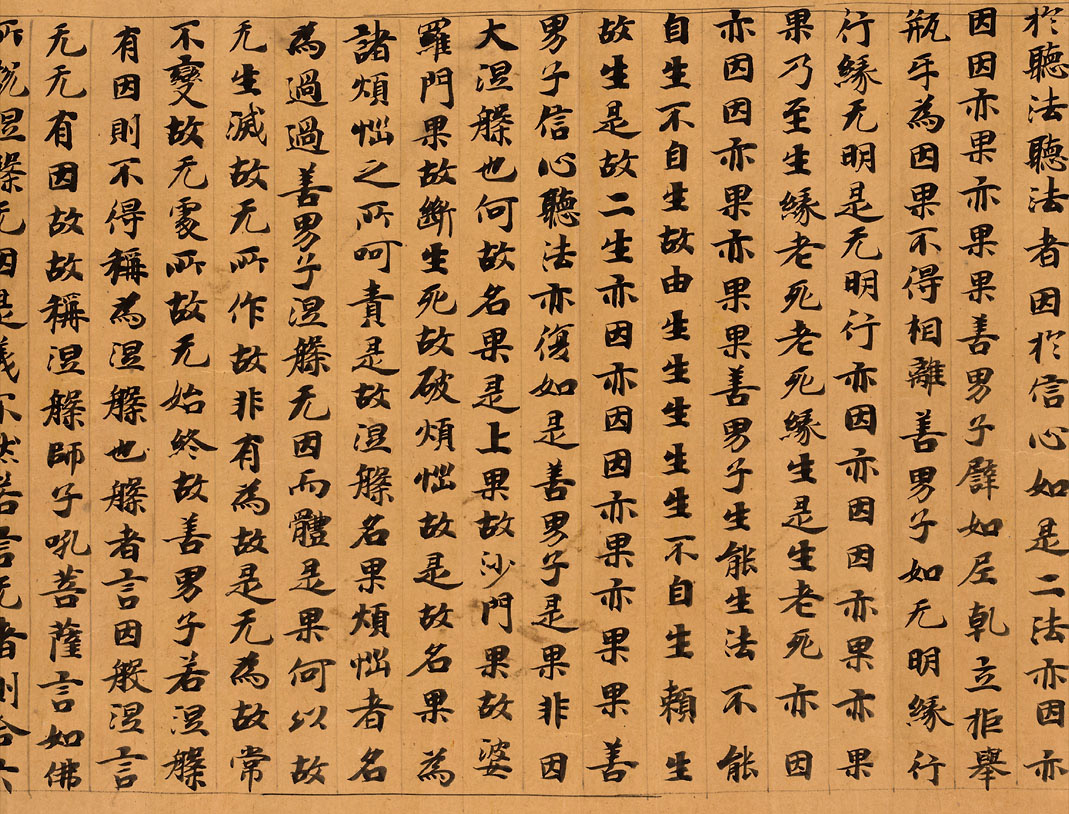 於聽法聽法者因於信心如是二法亦因亦
因因亦果亦果果善男子譬如尼乹立拒舉
瓶乎為因果不得相離善男子如无明緣行
行緣无明是无明行亦因亦因因亦果亦果
果乃至生緣老死老死緣生是生老死亦因
亦因因亦果亦果果善男子生能生法不能
自生不自生故由生生生生生不自生頼生
故生是故二生亦因亦因因亦果亦果果善
男子信心聽法亦復如是善男子是果非因
大涅槃也何故名果是上果故沙門果故婆
羅門果故斷生死故破煩惱故是故名果為
諸煩惱之所呵責是故涅槃名果煩惱者名
為過過善男子涅槃无因而體是果何以故
无生滅故无所作故非有為故是无為故常
不變故无處所故无始終故善男子若涅槃
有因則不得稱為涅槃也槃者言因般涅言
无无有因故故稱涅槃師子吼菩薩言如佛
所說涅槃无因是義不然若言无者則合六